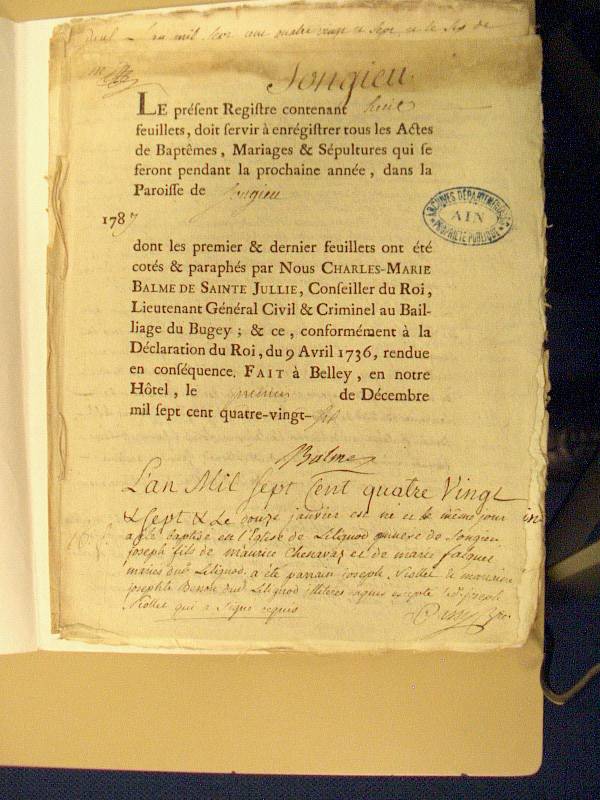 Songieu
LE préſent Regiſtre contenant huit
feuillets, doit ſervir à enrégiſtrer tous les Actes
de Baptêmes, Mariages & Sépultures qui ſe
feront pendant la prochaine année, dans la
Paroiſſe de Songieu
1787
dont les premier & dernier feuillets ont été
cotés & paraphés par Nous CHARLES-MARIE
BALME DE SAINTE JULLIE, Conſeiller du Roi,
Lieutenant Général Civil & Criminel au Bail-
liage du Bugey; & ce, conformément à la
Déclaration du Roi, du 9 Avril 1736, rendue
en conſéquence. FAIT à Belley, en notre
Hôtel, le premier de Décembre
mil ſept cent quatre-vingt-six
ARCHIVES DÉPARTEMENTALES
AIN
PROPRIÉTÉ PUBLIQUE
Balme
L'an Mil Sept Cent quatre Vingt
& Sept & Le douze janvier est né et le même jour
a été baptisé en l'Eglise de Lilignod annexe de Songieu
joseph fils de maurice Chenavaz et de marie falque
mariés dud. Lilignod. a été parrain joseph Niollet & marraine
josephte Benoit dud. Lilignod illitérés requis excepté led. joseph
Niollet qui a signé requis